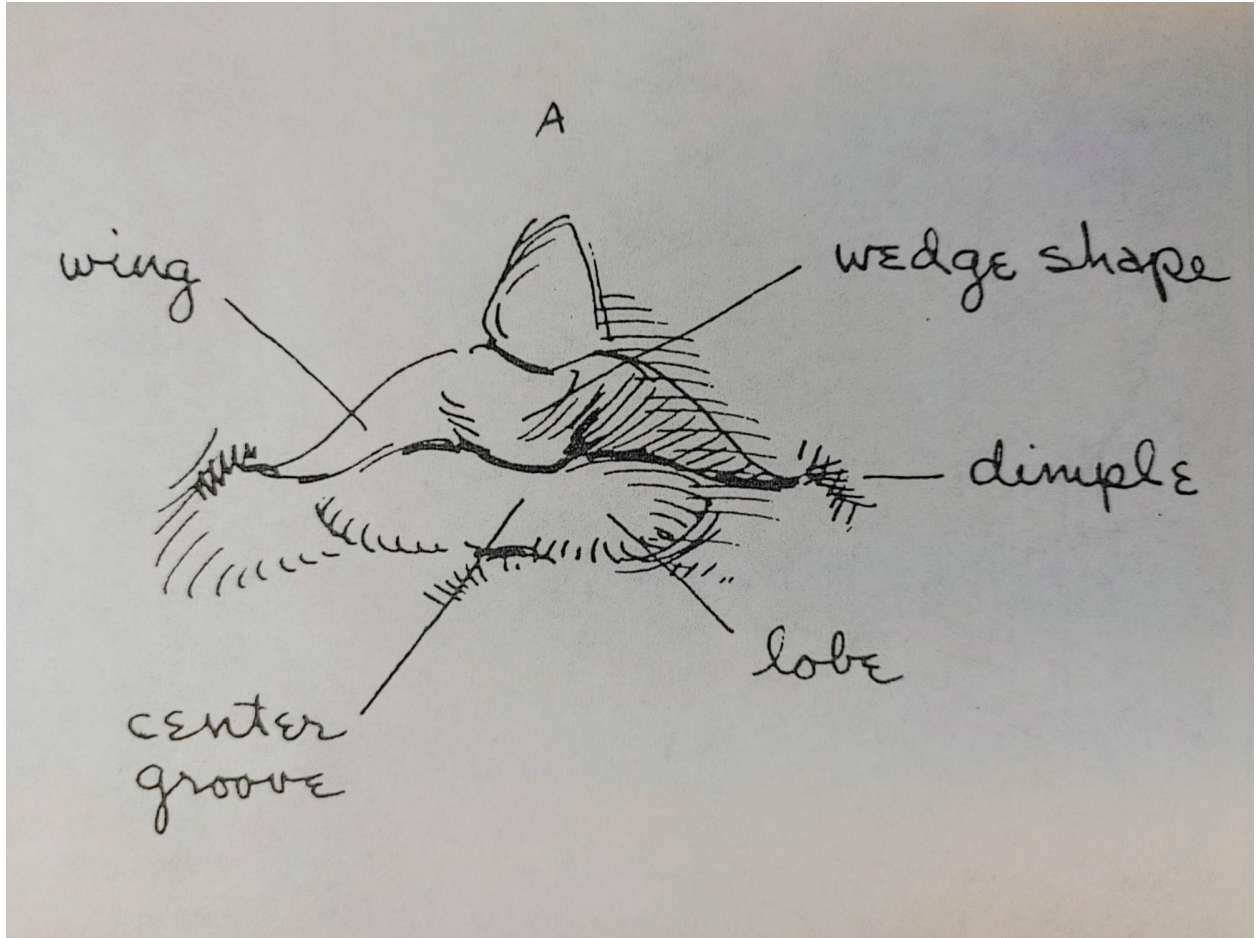 A
wing
wedge shape
dimple
lobe
center
groove